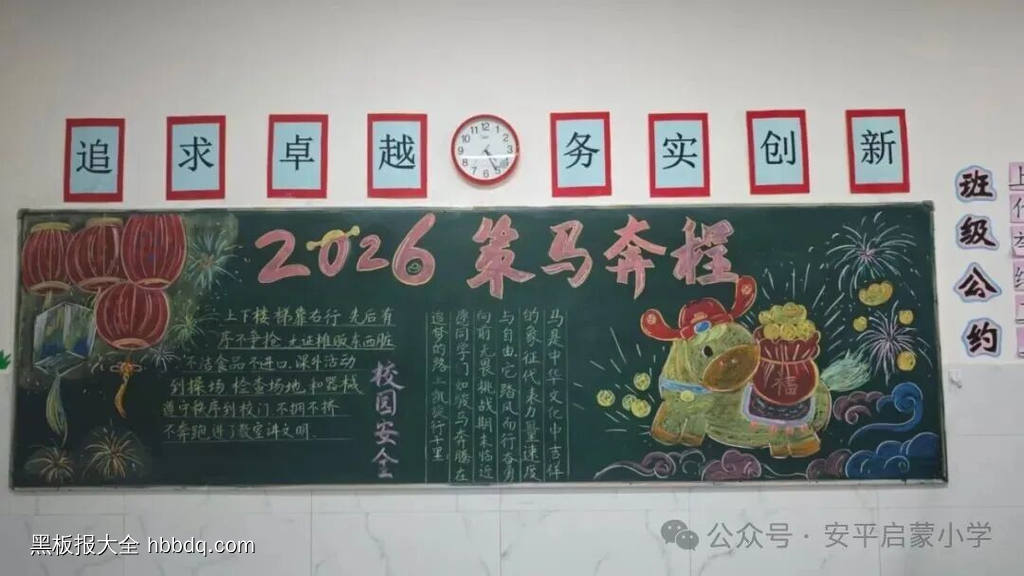 追求卓越 务实创新
班级公约
2026 策马奔程
上下楼梯靠右行 先后有
序不争抢 无证摊贩东西脏
不洁食品不进口 课外活动
到操场 检查场地和器械
遵守秩序到校门 不拥不挤
不奔跑 进了教室讲文明
校园安全
马是中华文化中吉祥
的象征代表力量速度
与自由它踏风而行奋勇
向前无畏挑战期末临近
愿同学们如骏马奔腾在
追梦的路上驰骋行千里
福
黑板报大全 hbbdq.com
公众号·安平启蒙小学